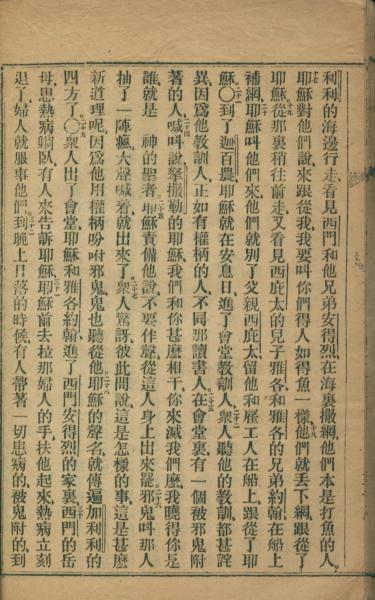 利利的海邊行走看見西門和他兄弟安得烈在海裏撒網他們本是打魚的人
十七耶穌對他們說來跟從我我要叫你們得人如得魚一樣十八他們就丟下網跟從了
耶穌十九從那裏稍往前走又看見西庇太的兒子雅各和雅各的兄弟約翰在船上
補網二十耶穌叫他們來他們就別了父親西庇太留他和雇工人在船上跟從了耶
穌〇二十一到了迦百農耶穌就在安息日進了會堂教訓人二十二衆人聽他的教訓都甚詫
異因爲他教訓人正如有權柄的人不同那讀書人二十三在會堂裏有一個被邪鬼附
著的人喊叫說二十四拏撒勒的耶穌我們和你甚麽相干你來滅我們麽我曉得你是
誰就是 神的聖者二十五耶穌責備他說不要作聲從這人身上出來罷二十六邪鬼叫那人
抽了一陣瘋大聲喊着就出來了二十七衆人驚訝彼此間說這是怎樣的事這是甚麽
新道理呢因爲他用權柄吩咐邪鬼鬼也聽從他二十八耶穌的聲名就傳遍加利利的
四方了〇二十九衆人出了會堂耶穌和雅各約翰進了西門安得烈的家裏三十西門的岳
母患熱病躺臥有人來告訴耶穌三十一耶穌前去拉那婦人的手扶他起來熱病立刻
退了婦人就服事他們三十二到晚上日落的時候有人帶著一切患病的被鬼附的到